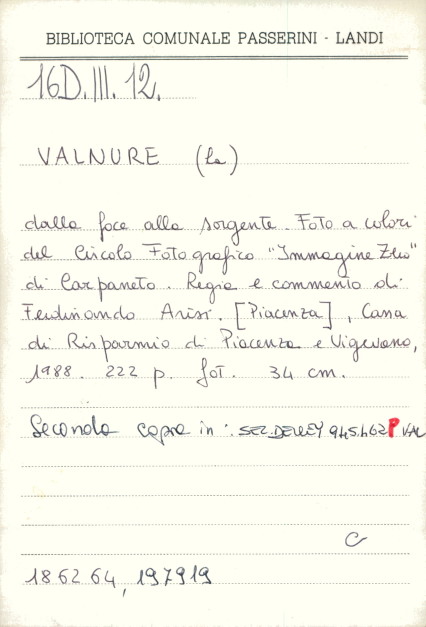 BIBLIOTECA COMUNALE PASSERINI - LANDI
16D.III.12.
VALNURE (La)
dalla foce alla sorgente. Foto a colori
del Circolo Fotografico "Immagine Zero"
di Carpaneto. Regia e commento di
Ferdinando Arisi. [Piacenza], Cassa
di Risparmio di Piacenza e Vigevano,
1988. 222 p. fot. 34 cm.
Seconda copia in: SEZ. DEWEY 945.462 P VAL
C
186264, 197919